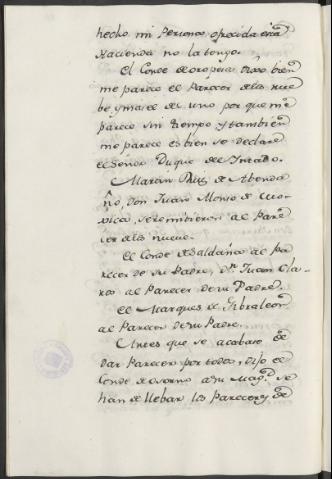 hecho mi Persona ofrecida esta
Hacienda no la tengo.
El Conde de oropesa Dixo bien
me parece el Parecer de los nue
be y mas el de uno por que me
parece sin tiempo y tambien
me parece es bien se declare
el Señor Duque del Infantado.
Martin Ruiz de Abenda
ño, Don Juan Alonso de
se remitieron al Pare
cer de los nueve.
El Conde de Saldaña al Pa
recer de su Padre, Dn. Juan Cla-
ros al Parecer de su Padre.
El Marques de Gibraleon
al Parecer de su Padre.
Antes que se acabase de
dar Parecer por todos, dijo el
Conde de osorno a su Magd. se
han de llebar los Pareceres de